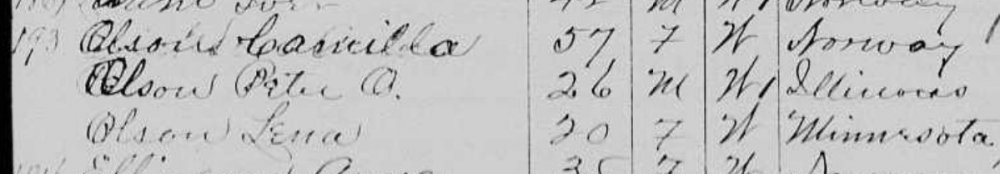 Norway
193 Olson Camilla 57 F W Norway
Olson Peter O. 26 M W Illinois
Olson Lena 20 F W Minnesota